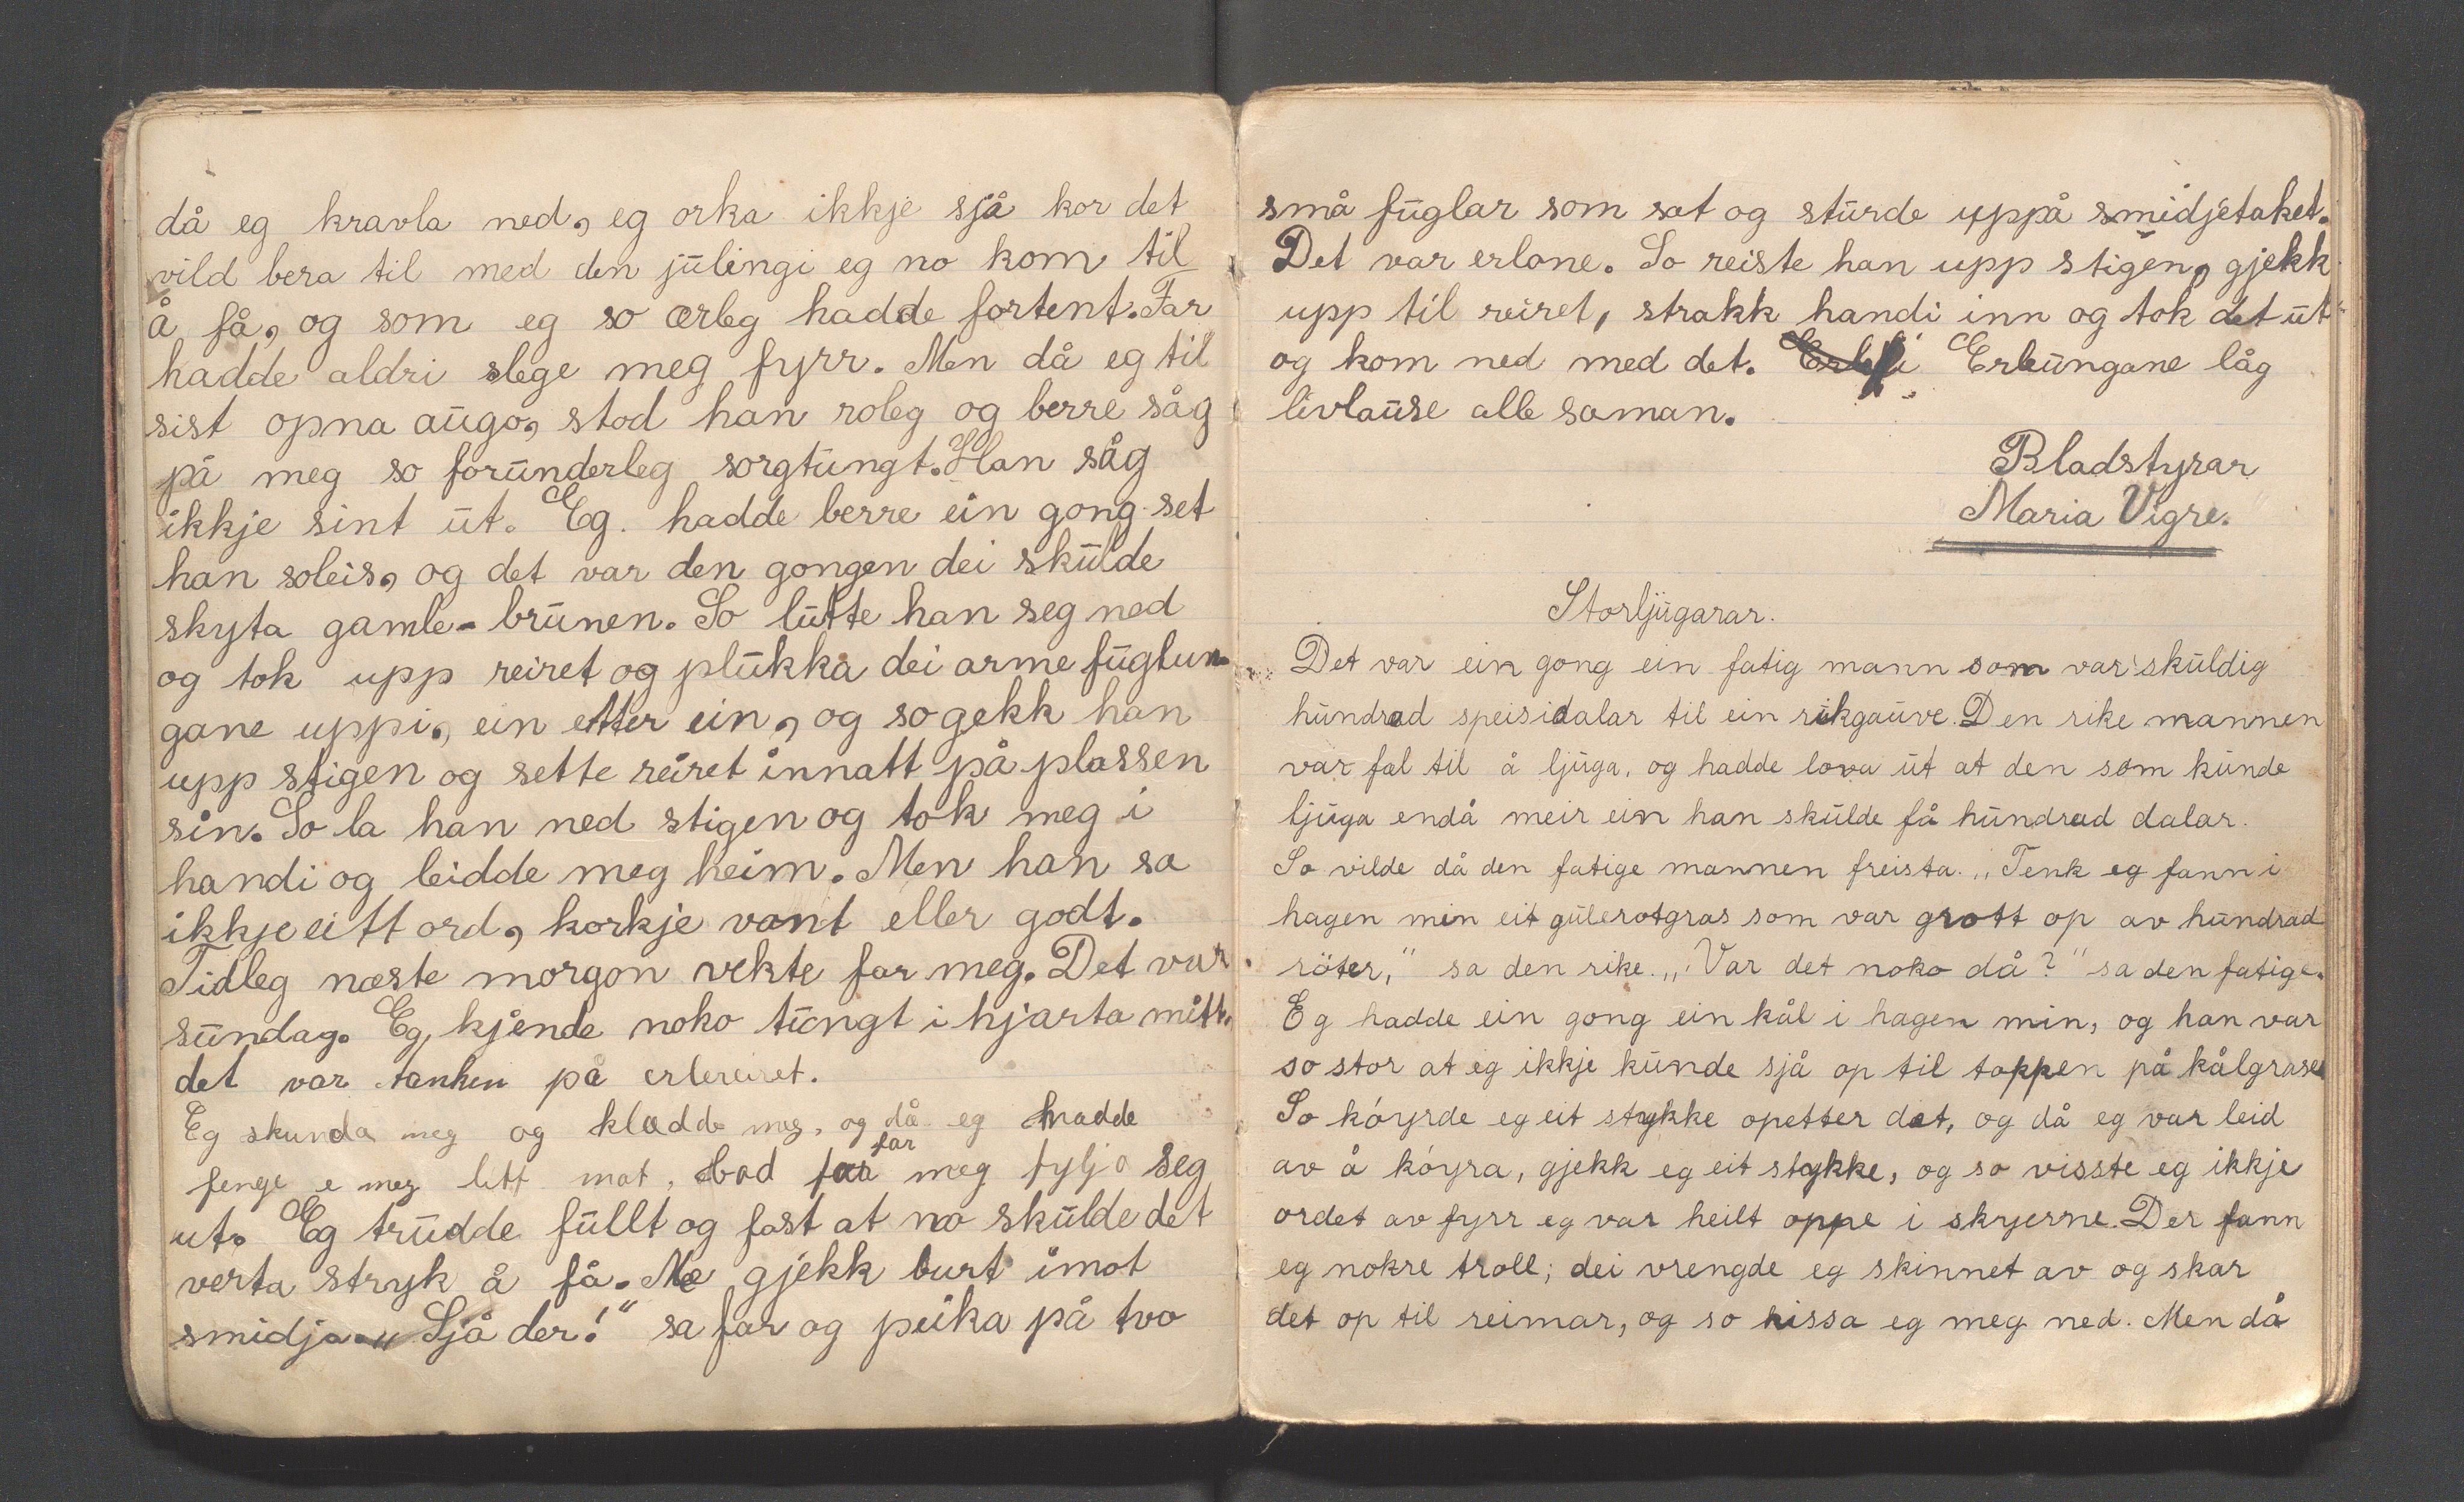 då eg kravla ned, eg orka ikkje sjå kor det
vild bera til med den julingi eg no kom til
å få, og som eg so ærleg hadde fortent. Far
hadde aldri slege meg fyrr. Men då eg til
sist opna augo, stod han roleg og berre såg
på meg so forunderleg sorgtungt. Han såg
ikkje sint ut. Eg. hadde berre ein gong set
han soleis, og det var den gongen dei skulde
skyta gamle-brunen. So lutte han seg ned
og tok upp reiret og plukka dei arme fuglun-
gane uppi, ein etter ein, og so gekk han
upp stigen og sette reiret innatt på plassen
sin. So la han ned stigen og tok meg i
handi og leidde meg heim. Men han sa
ikkje eitt ord, korkje vont eller godt.
Tidleg næste morgon vekte far meg. Det var
sundag. Eg kjende noko tungt i hjarta mitt,
det var tanken på erlereiret.
Eg skunda meg og klædde meg, og då eg hadde
far
fenge meg litt mat, bad far meg fylja seg
ut. Eg trudde fullt og fast at no skulde det
verta stryk å få. Me gjekk burt imot
smidja. „Sjå der!" sa far og peika på tvo
små fuglar som sat og sturde uppå smidjetaket.
Det var erlone. So reiste han upp stigen, gjekk
upp til reiret, strakk handi inn og tok det ut
og kom ned med det. Erleungane låg
livlause alle saman.
Bladstyrar
Maria Vigre.
Storljugarar.
Det var ein gong ein fatig mann som var skuldig
hundrad speisidalar til ein rikgauve. Den rike mannen
var fal til å ljuga, og hadde lova ut at den som kunde
ljuga endå meir ein han skulde få hundrad dalar.
So vilde då den fatige mannen freista. „Tenk eg fann i
hagen min eit gulerotgras som var grott op av hundrad
röter," sa den rike. „Var det noko då?" sa den fatige.
Eg hadde ein gong ein kål i hagen min, og han var
so stor at eg ikkje kunde sjå op til toppen på kålgraset
So köyrde eg eit stykke opetter det, og då eg var leid
av å köyra, gjekk eg eit stykke, og so visste eg ikkje
ordet av fyrr eg var heilt oppe i skyerne. Der fann
eg nokre troll; dei vrengde eg skinnet av og skar
det op til reimar, og so hissa eg meg ned. Men då